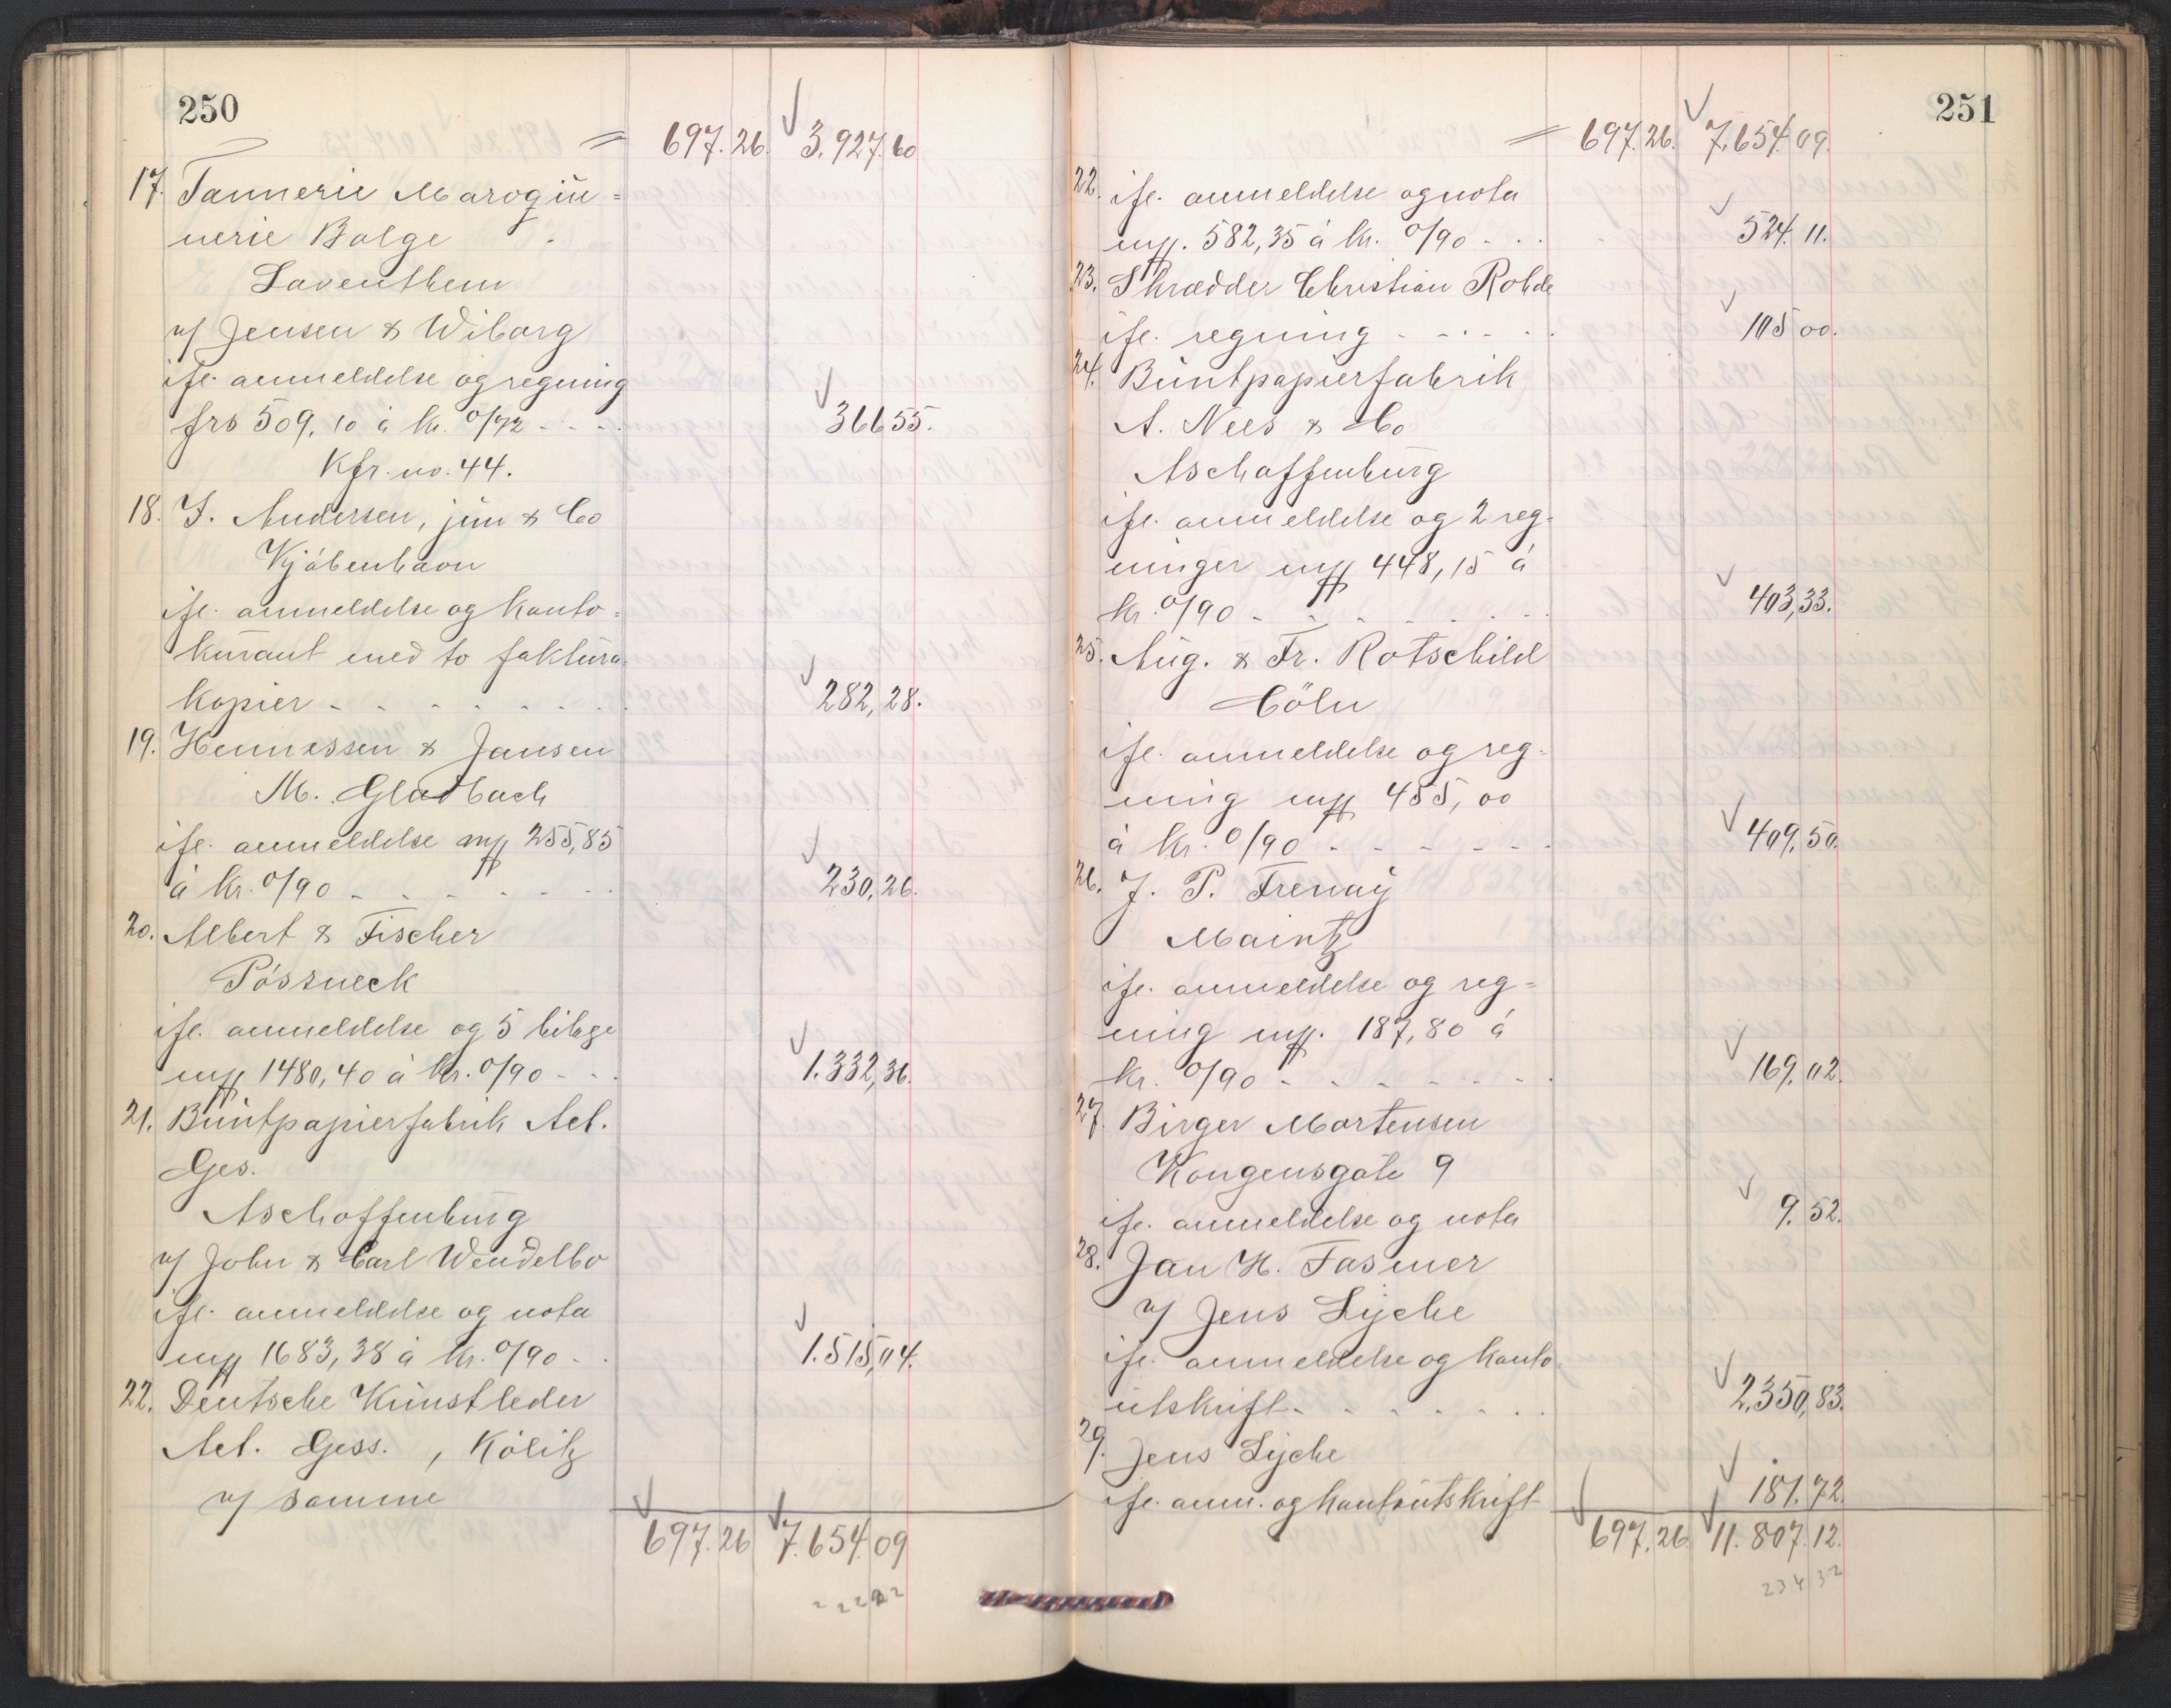 250
= 697.26. 3.927.60
17. Tannerie Maroqui=
nerie Balge
Saventhem
v/ Jensen & Wiborg
ifl. anmeldelse og regning
frs 509,10 à kr. 0/72 - - - 366 55.
Kfr. no. 44.
18. J. Andersen, jun & Co
Kjøbenhavn
ifl. anmeldelse og konto=
kurant med to faktura
kopier - - - - - - - 282,28.
19. Hennessen & Jansen
M. Gladbach
ifl. anmeldelse mk 255,85
à kr. 0/90 - - - - - - 230,26.
20. Albert & Fischer
Pössneck
ifl. anmeldelse og 5 bilage
mk 1480,40 à kr. 0/90 - - - 1.332,36.
21. Buntpapierfabrik Act.
Ges.
Aschaffenburg
v/ John & Carl Wendelbo
ifl. anmeldelse og nota
mk 1683,38 à kr. 0/90 - - 1.515,04.
22. Deutsche Kunstleder
Act. Gess., Kölitz
v/ samme
697.26 7.654.09
2 2 2 2 2
251
= 697.26. 7.654.09.
22. ifl. anmeldelse og nota
mk. 582,35 à kr. 0/90 - - - 524.11.
23. Skrædder Christian Rohde
ifl. regning - - - - - 105 00.
24. Buntpapierfabrik
A. Nees & Co
Aschaffenburg
ifl. anmeldelse og 2 reg=
ninger mk 448,15 à
kr. 0/90 - - - - - - - 403,33.
25. Aug. & Fr. Rotschild
Cöln
ifl. anmeldelse og reg=
ning mk 455,00
à kr. 0/90 - - - - - - 409,50.
26. J. P. Frenay
Maintz
ifl. anmeldelse og reg=
ning mk. 187,80 à
kr. 0/90 - - - - - - - 169.02.
27. Birger Mortensen
Kongensgate 9
ifl. anmeldelse og nota 9.52.
28. Jan H. Fasmer
v/ Jens Lyche
ifl. anmeldelse og konto
utskrift - - - - - - - 2.350,83.
29. Jens Lyche
ifl. anm. og kontoutskrift 181.72.
697.26. 11.807.12.
2 3 4 3 2